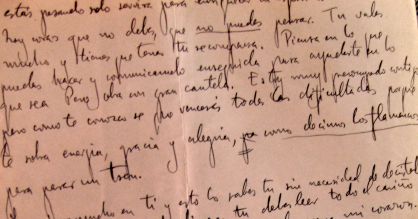 estás pasando solo servirá para
hoy cosas que no debes, que no puedes pensar. Tu vales
mucho y tienes que tener tu recompensa. Piensa en lo que
puedas hacer y comunícamelo enseguida para ayudarte en lo
que sea. Pero obra con gran cautela. Estoy muy preocupado contigo
pero como te conozco se que vencerás todas las dificultades porque
te sobra energía, gracia y alegría, como decimos los flamencos,
para parar un tren.
en ti y esto lo sabes tu sin necesidad de
tu debas leer todo el cariño
mi corazón.